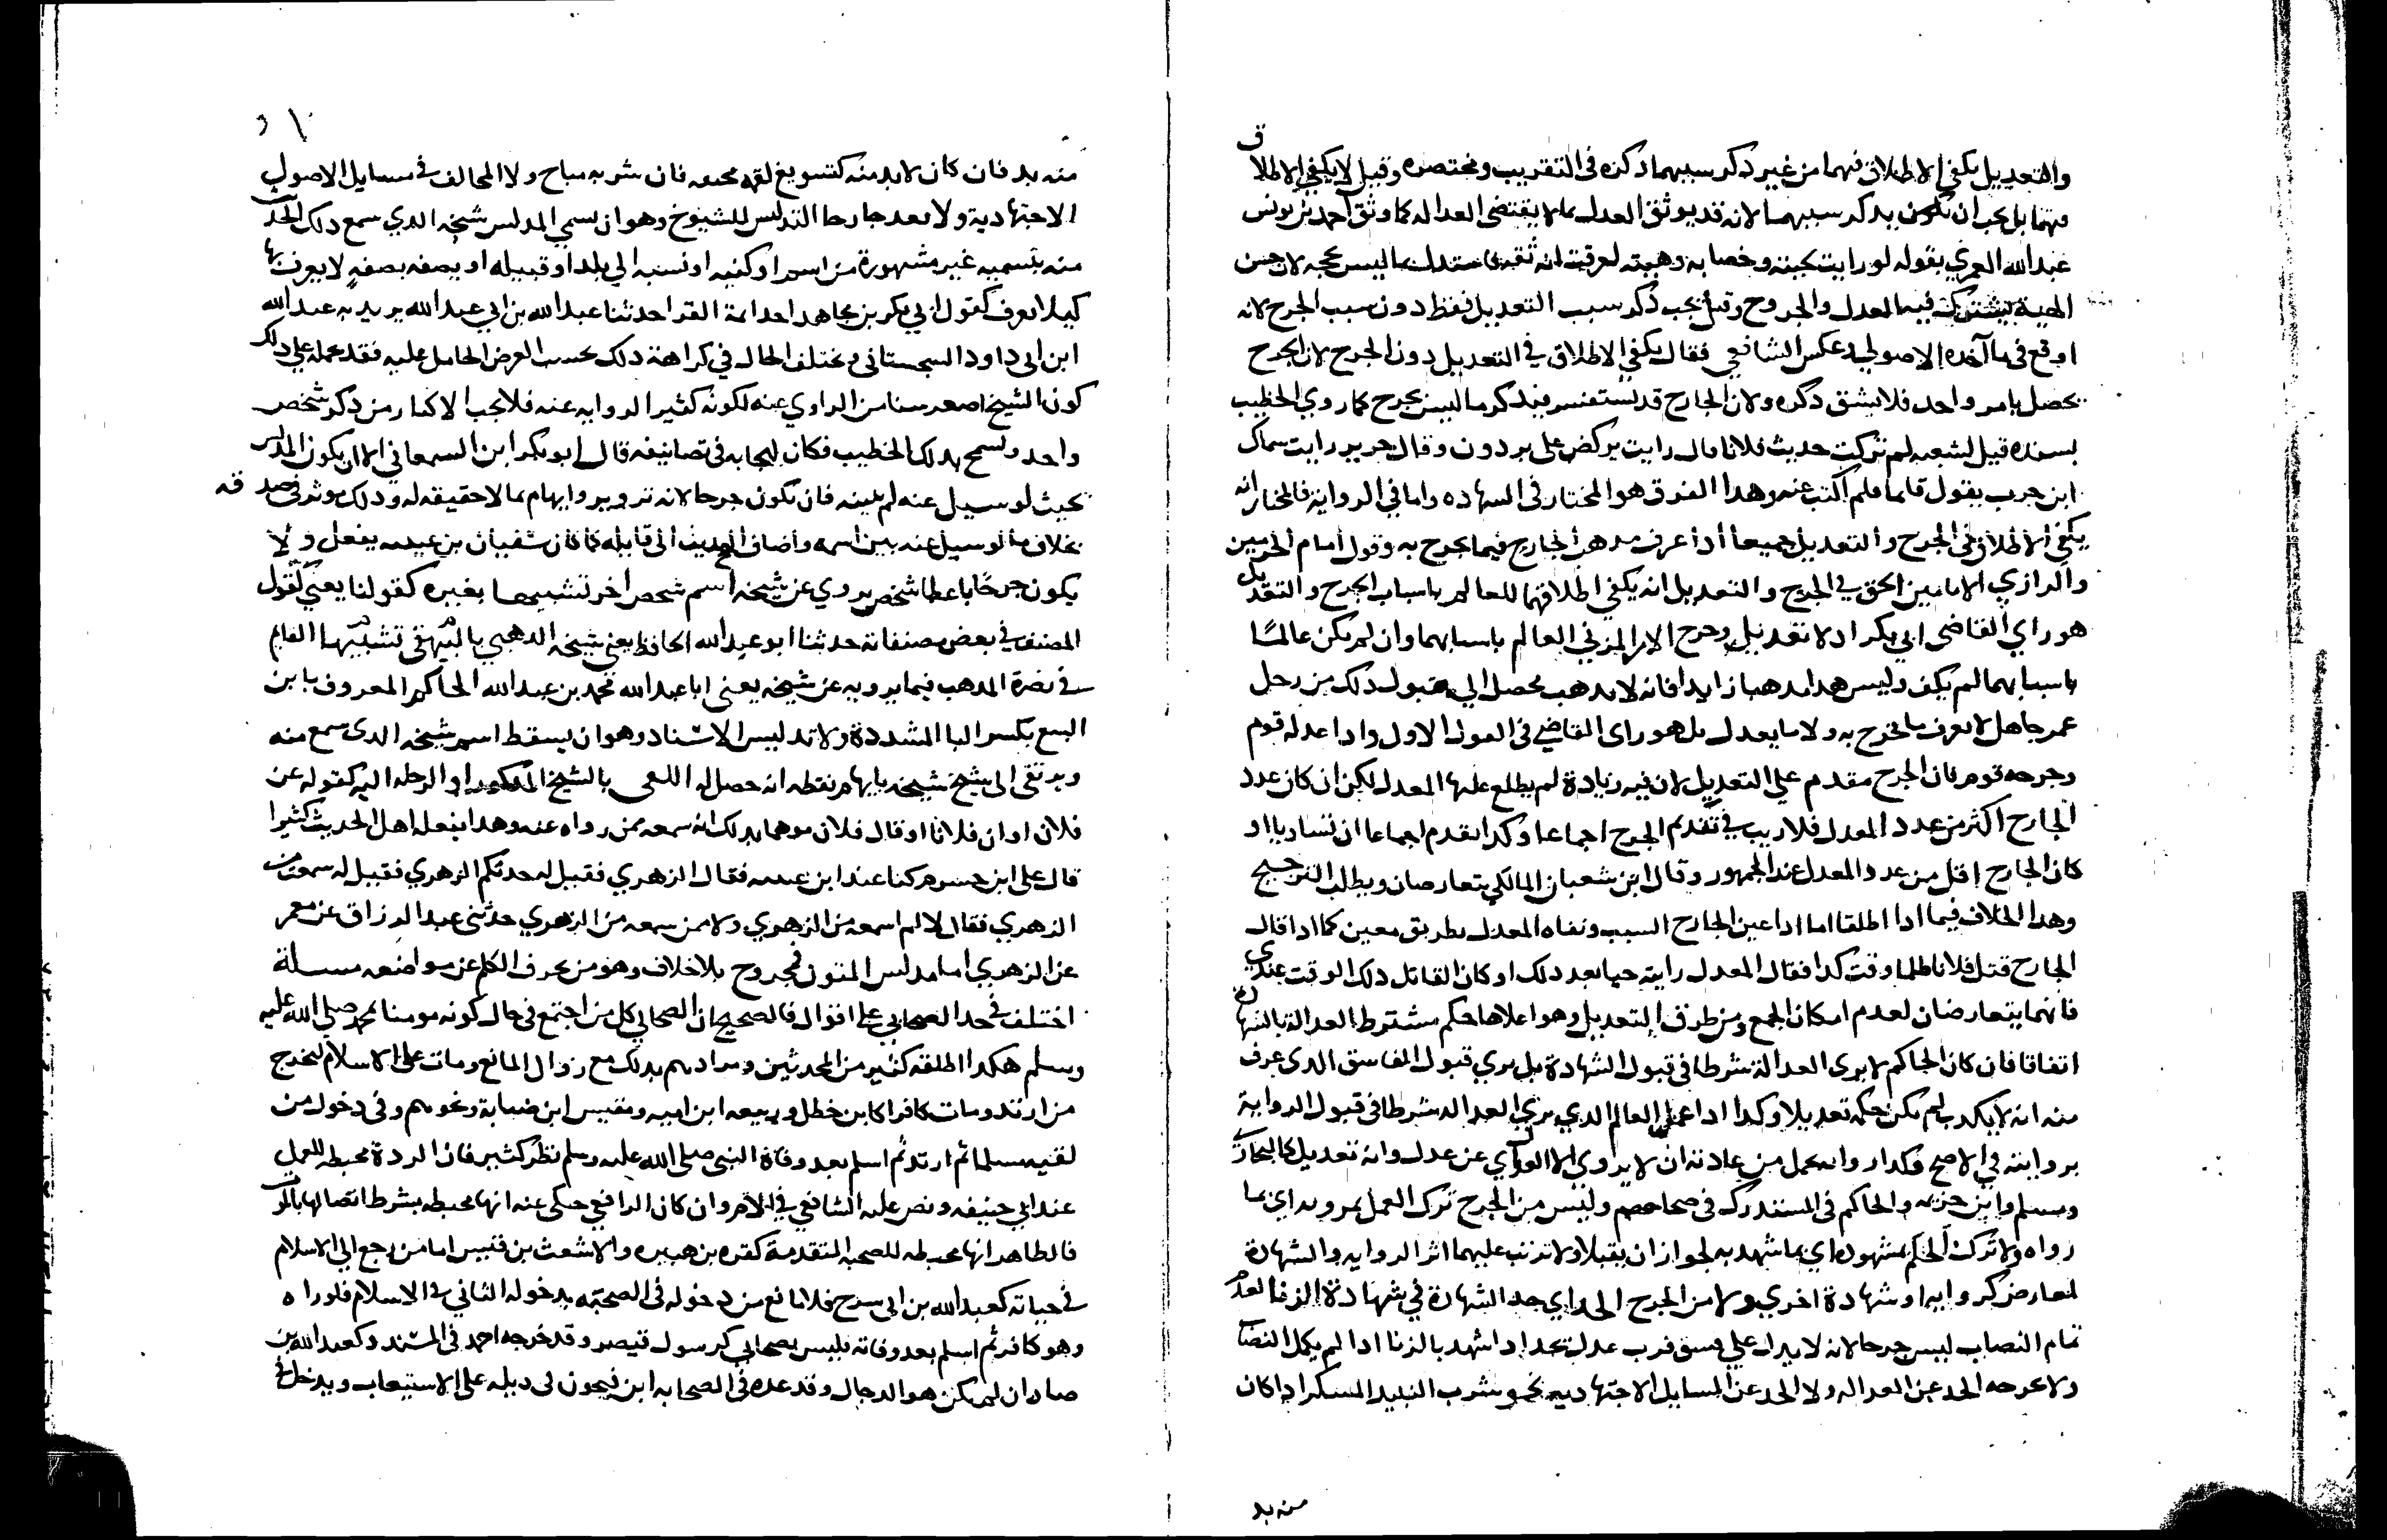 والتعديل يكفي الاطلاق فيهما من غير ذكر سببهما ذكره في التقريب ومختصره وقيل لا يكفي الاطلاق
فيهما بل يجب ان يكون بذكر سببهما لانه قد يوثق المعدل بما لا يقتضي العداله كما وثق احمد بن يونس
عبد الله العمري بقوله لو رايت لحيته وخضابه وهيبته لعرفت انه ثقه فاستدل بما ليس بحجه لان حسن
الهية يشترك فيها العدل والمجروح وقيل يجب ذكر سبب التعديل فقط دون سبب الجرح لانه
اوقع في ما آخذه الاصوليه عكس الشافعي فقال يكفي الاطلاق في التعديل دون الجرح لان الجرح
يحصل بامر واحد فلا يشق ذكره ولان الجارح قد يستفسر فيذكر ما ليس بجرح كما روي الخطيب
بسنده قيل لشعبه لم تركت حديث فلان قال رايت يركض على بردون وقال جرير رايت سماك
ابن حرب يبول قايما فلم اكتب عنه وهدا الفرق هو المختار في الشهاده واما في الرواية فالمختار انه
يكفي الاطلاق في الجرح والتعديل جميعا ادا عرف مدهب الجارح فيما يجرح به وقول امام الحرمين
والرازي الامامين الحق في الجرح والتعديل انه يكفي اطلاقهما للعالم باسباب الجرح والتعديل
هو راي القاضي ابي بكر اد لا تعديل وجرح الا من العالم باسبابهما وان لم يكن عالمًا
باسبابهما لم يكف وليس هدا مدهبا زايدا فانه لا يدهب محصل الي قبول دلك من رجل
غمر جاهل لا يعرف ما يجرح به ولا ما يعدل بل هو راى القاضي في القول الاول وادا عدله قوم
وجرحه قوم فان الجرح مقدم علي التعديل لان فيه زيادة لم يطلع عليها المعدل لكن ان كان عدد
الجارح اكثر من عدد المعدل فلا ريب في تقديم الجرح اجماعا وكدا يقدم اجماعا ان تساويا او
كان الجارح اقل من عدد المعدل عند الجمهور وقال ابن شعبان المالكي يتعارضان ويطلب الترجيح
وهدا الخلاف فيما ادا اطلقا اما ادا عين الجارح السبب ونفاه المعدل بطريق معين كما ادا قال
الجارح قتل فلانا ظلما وقت كدا فقال المعدل رايته حيا بعد دلك او كان القاتل دلك الوقت عندي
فانهما يتعارضان لعدم امكان الجمع ومن طرق التعديل وهو اعلاها حكم مشترط العدالة بالشهادة
اتفاقا فان كان الحاكم لا يرى العدالة شرطا في قبول الشهادة بل يري قبول الفاسق الدى عرف
منه انه لا يكدب لم يكن حكمه تعديلا وكدا ادا عمل العالم الدي يري العداله شرطا في قبول الرواية
بروايته في الاصح وكدا رواية من عادته ان لا يروي الا عن عدل وانه تعديل كالبخاري
ومسلم وابن خزيمه والحاكم في المستدرك في صحاحهم وليس من الجرح ترك العمل بمرويه اي بما
رواه ولا ترك الحكم بمشهوده اي بما شهد به لجواز ان يقبلا ولا ترتب عليهما اثر الرواية والشهادة
لمعارض كرواية او شهادة اخري ولا من الجرح الحد اي حد الشهادة في شهادة الزنا لعدم
تمام النصاب ليس جرحا لانه لا يدل علي فسق فرب عدل يحد ادا شهد بالزنا ادا لم يكمل النصاب
ولا يخرجه الحد عن العداله ولا الحد عن المسايل الاجتهاديه نحو شرب النبيد المسكر ادا كان
منه بد
منه بد فان كان لا بد منه كتسويغ لقمه فان شربه مباح ولا المخالف في مسايل الاصول
الاجتهادية ولا يعد جارحا التدليس للشيوخ وهو ان يسمي المدلس شيخه الدي سمع دلك الحديث
منه بتسميه غير مشهورة من اسم او كنيه او نسبه الي بلد او قبيله او يصفه بصفةٍ لا يعرف بها
كيلا يعرف كقول ابي بكر بن مجاهد احد ايمة القرا حدثنا عبد الله بن ابي عبد الله يريد به عبد الله
ابن ابى داود السجستانى ويختلف الحال في كراهة دلك بحسب الغرض الحامل عليه فقد يحمله علي دلك
كون الشيخ اصغر سنا من الراوي عنه لكونه كثير الروايه عنه فلا يحب الاكثار من دكر شخص
واحد وتسمح بدلك الخطيب فكان لهجا به في تصانيفه قال ابو بكر ابن السمعاني الا ان يكون المدلس
بحيث لو سيل عنه لم يبينه فان يكون جرحا لانه تزوير وايهام بما لا حقيقه له ودلك يوثر في صدقه
بخلاف ما لو سيل عنه بين اسمه واضاف الحديث الى قايله كما كان سفيان بن عيينه يفعل ولا
يكون جرحًا باعطا شخص يروي عن شيخه اسم شخص آخر تشبيهها بغيره كقولنا يعني كقول
المصنف في بعض مصنفاته حدثنا ابو عبد الله الحافظ يعني شيخه الدهبي بالبيهقي تشبيها القايم
في نصرة المدهب فيما يرويه عن شيخه يعني ابا عبد الله محمد بن عبد الله الحاكم المعروف بابن
البيع بكسر اليا المشددة ولا تدليس الاسناد وهو ان يسقط اسم شيخه الدى سمع منه
ويرتقى الى شيخ شيخه بايهام بلفظه انه حصل له اللقي بالشيخ المدكور او الرحله اليه كقوله عن
فلان او ان فلانا او قال فلان موهما بدلك انه سمعه ممن رواه عنه وهدا يفعله اهل الحديث كثيرا
قال على ابن خشرم كنا عند ابن عيينه فقال الزهري فقيل له حدثكم الزهري فقيل له سمعت من
الزهري فقال لا لم اسمعه من الزهري ولا ممن سمعه من الزهري حدثني عبد الرزاق عن معمر
عن الزهري اما مدلس المتون فمجروح بلا خلاف وهو من يحرف الكلم عن مواضعه مسئلة
اختلف في حد الصحابي على اقوال فالصحيح ان الصحابي كل من اجتمع في حال كونه مومنا بمحمد صلي الله عليه
وسلم هكدا اطلقه كثير من المحدثين ومرادهم بدلك مع زوال المانع ومات على الاسلام ليخرج
من ارتد ومات كافرا كابن خطل وربيعه ابن اميه ومقيس ابن ضبابة ونحوهم وفي دخول من
لقيه مسلما ثم ارتد ثم اسلم بعد وفاة النبي صلي الله عليه وسلم نظر كثير فان الردة محبطه للعمل
عند ابي حنيفه ونص عليه الشافعي في الام وان كان الرافعي حكى عنه انها محبطه بشرط اتصالها بالموت
فالظاهر انها محبطه للصحبه المتقدمة كقره بن هبيره والاشعث بن قيس اما من رجع الي الاسلام
في حياته كعبد الله بن ابى سرح فلا مانع من دخوله في الصحبه بدخوله الثاني في الاسلام فلو راه
وهو كافر ثم اسلم بعد وفاته فليس بصحابي كرسول قيصر وقد خرجه احمد في المسند وكعبد الله بن
صياد ان لم يكن هو الدجال وقد عده في الصحابه ابن فيحون في ديله على الاستيعاب ويدخل في